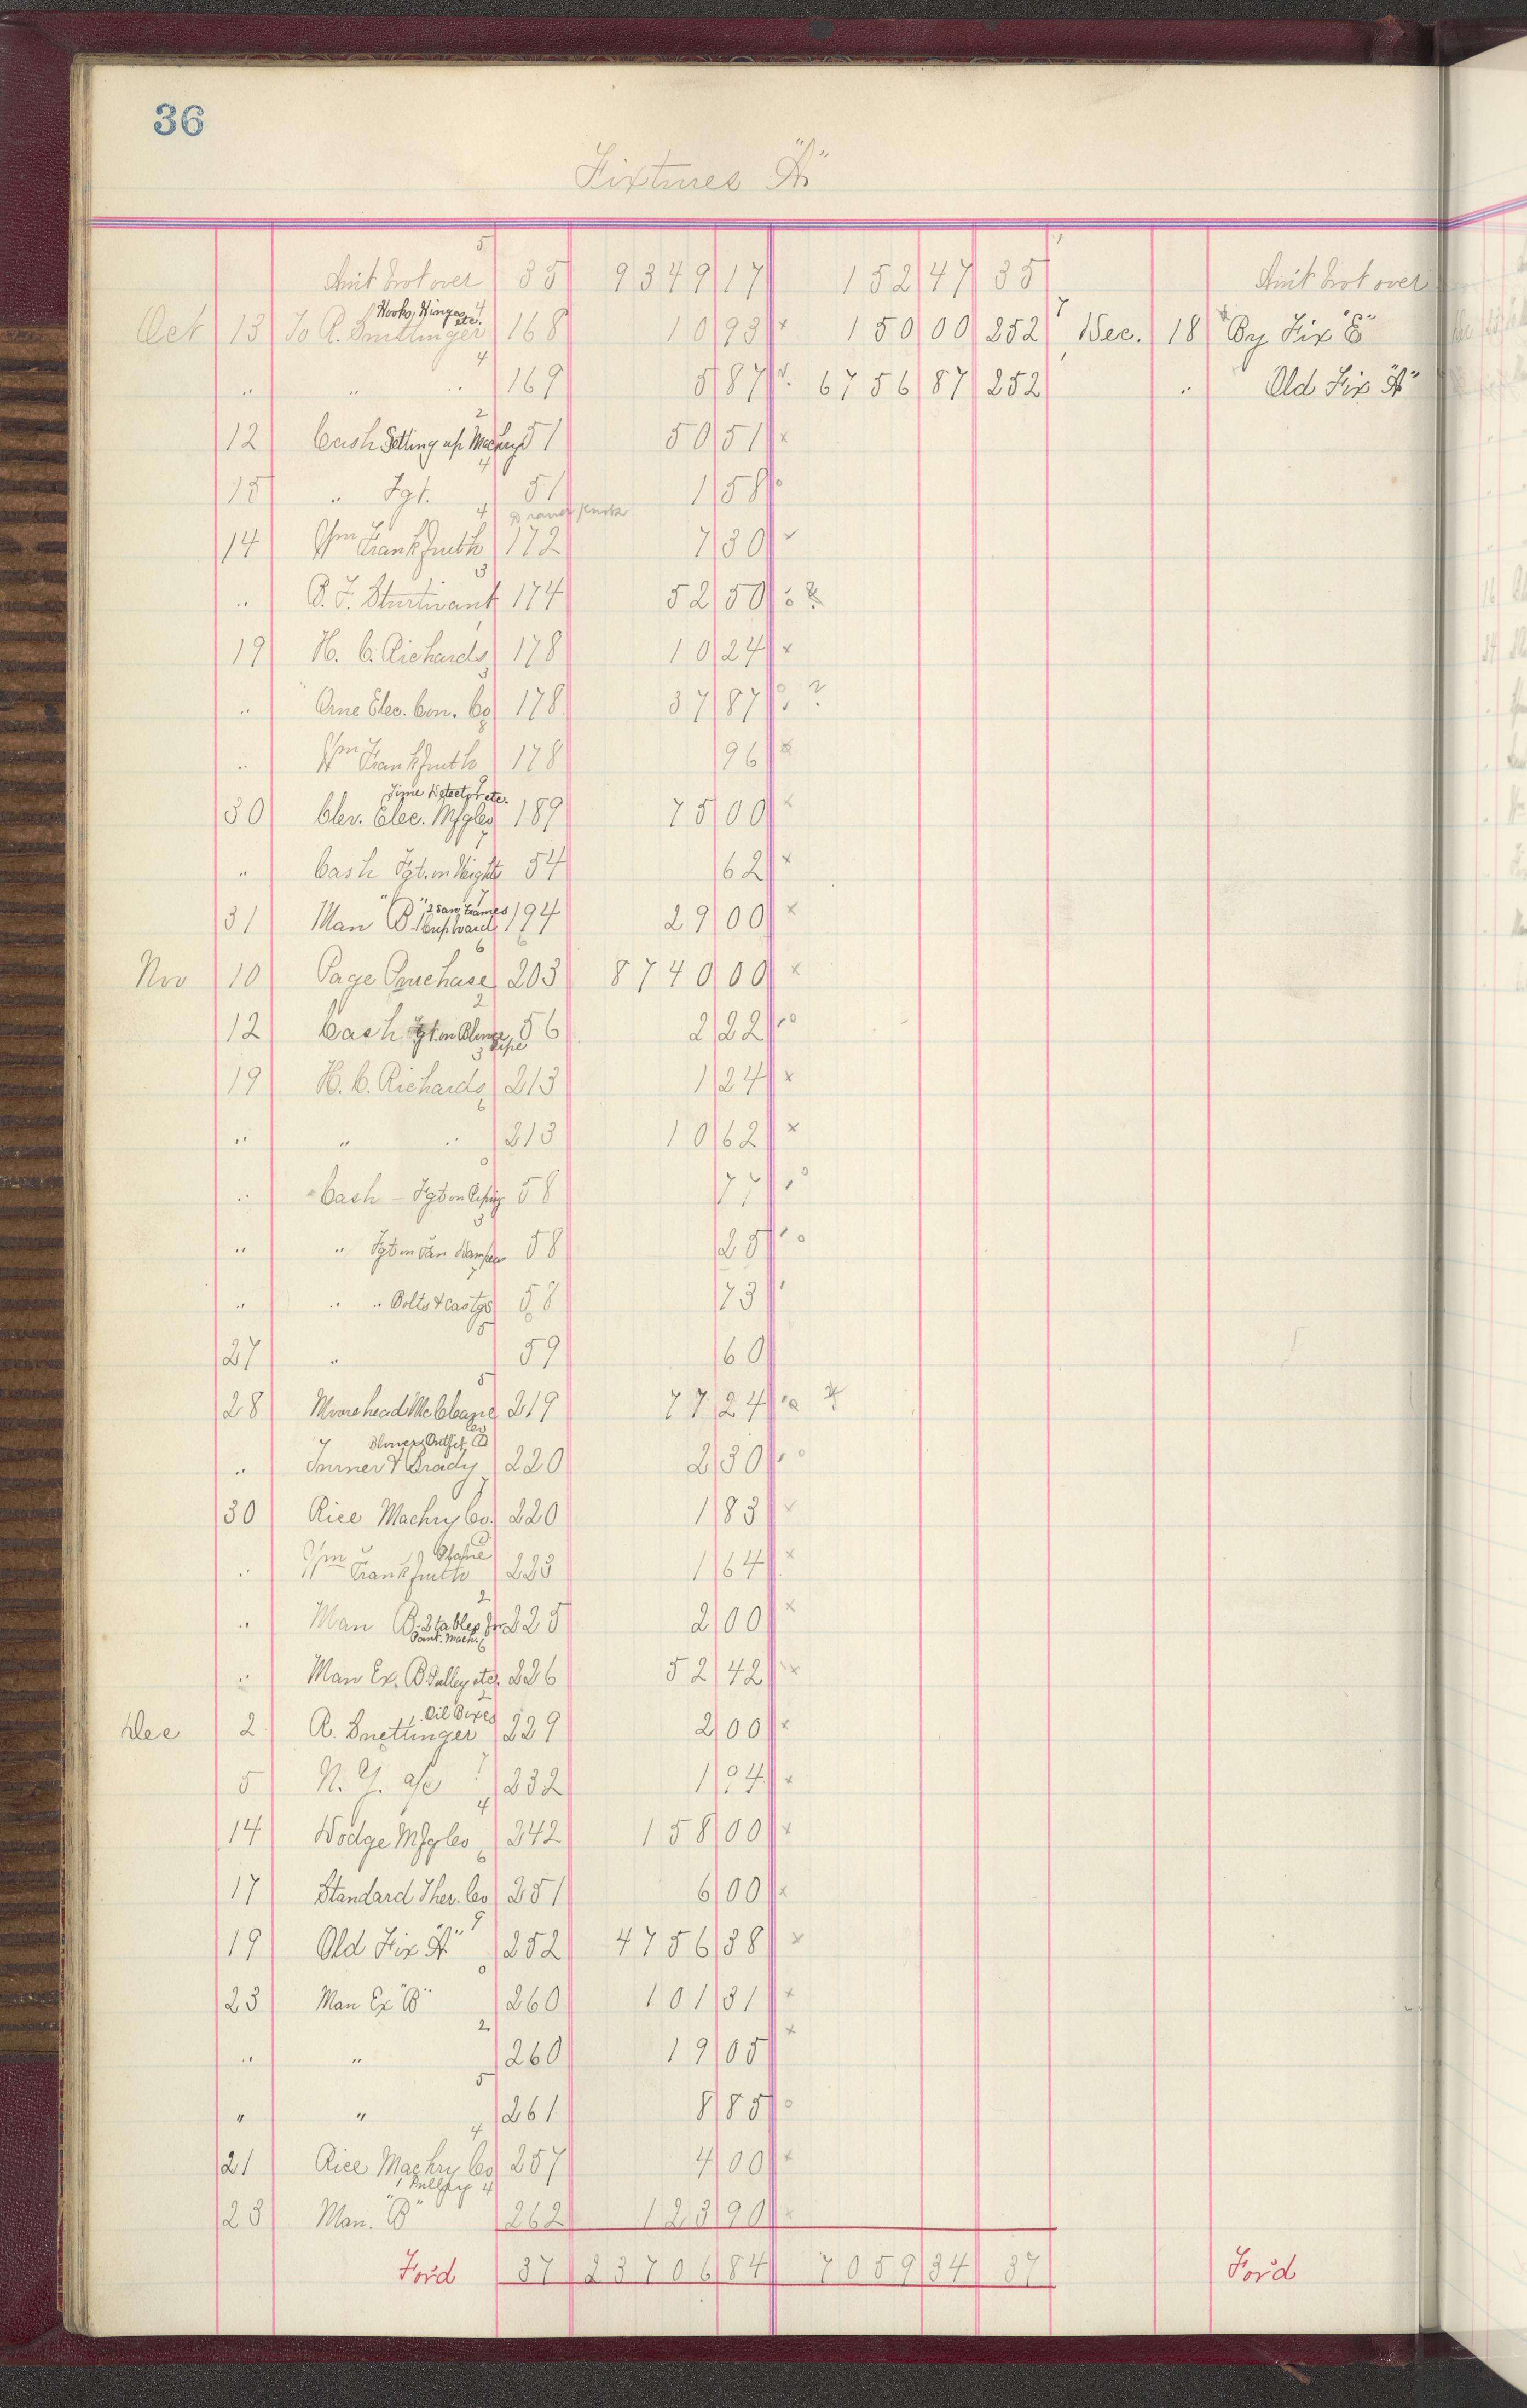 36
Fixtures "A"
5
Amt brot over 35 9349 17 152 47 35 Amt brot over
Hooks, Hinges etc. 4
Oct 13 To R. Snettinger 168 10 93 x 150 00 252 7 Dec. 18 By Fix "E"
4
" " " 169 5 87 6756 87 252 " Old Fix "A"
2
12 Cash Setting up Machry 51 50 51 x
4
15 " Fgt. 51 1 58
4
14 Wm Frankfurth 172 7 30
3
" B. F. Sturtivant 174 52 50 ?
19 H. C. Richards 178 10 24 x
3
" Arne Elec. Con. Co 178 37 87 ?
8
" Wm Frankfurth 178 96 x
Time Detector etc.
30 Clev. Elec. Mfg Co 189 75 00 x
7
" Cash Fgt. on Weights 54 62 x
7
31 Man "B" 2 Saw Frames 1 Cupboard 194 29 00 x
6
Nov 10 Page Purchase 203 8740 00 x
2
12 Cash Fgt. on Blower Pipe 56 2 22
3
19 H. C. Richards 213 1 24 x
6
" " " 213 10 62 x
0
" Cash - Fgt on Piping 58 77
3
" " Fgt on Van Damper 58 25
7
" " " Bolts & Castgs 58 73
5
27 " 59 60
5
28 Moorehead McCleane Co 219 77 24
Blower Outfit
" Turner & Brady 220 2 30
7
30 Rice Machry Co. 220 1 83 x
" Wm Frankfurth 223 1 64 x
2
" Man B. 2 tables for Paint. Mach. 225 2 00 x
6
" Man Ex. B Pulley etc. 226 52 42 x
Oil Boxes
Dec 2 R. Snettinger 229 2 00 x
5 N. Y. a/c 232 1 94 x
4
14 Dodge Mfg Co 242 158 00 x
6
17 Standard Ther. Co 251 6 00 x
9
19 Old Fix "A" 252 4756 38 x
0
23 Man Ex "B" 260 101 31 x
2
" " 260 19 05 x
5
" " 261 8 85
4
21 Rice Machry Co 257 4 00 x
1 Pulley 4
23 Man. "B" 262 123 90 x
For'd 37 23706 84 7059 34 37 For'd